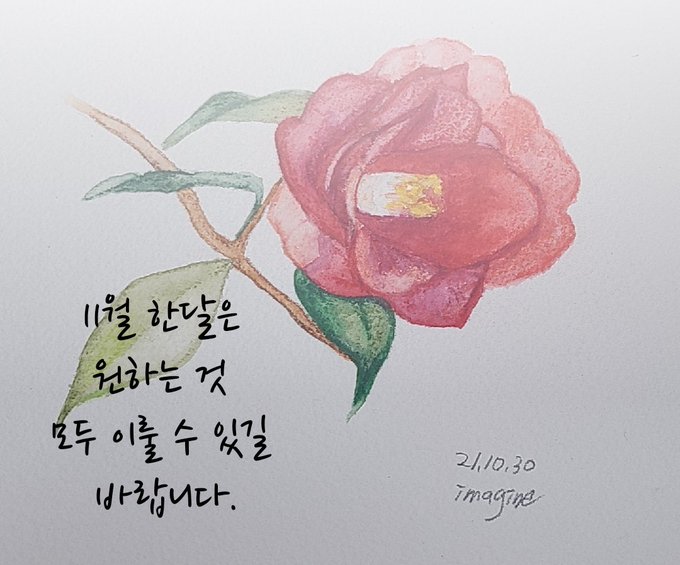 11월 한달은
원하는 것
모두 이룰 수 있길
바랍니다.
21.10.30
imagine